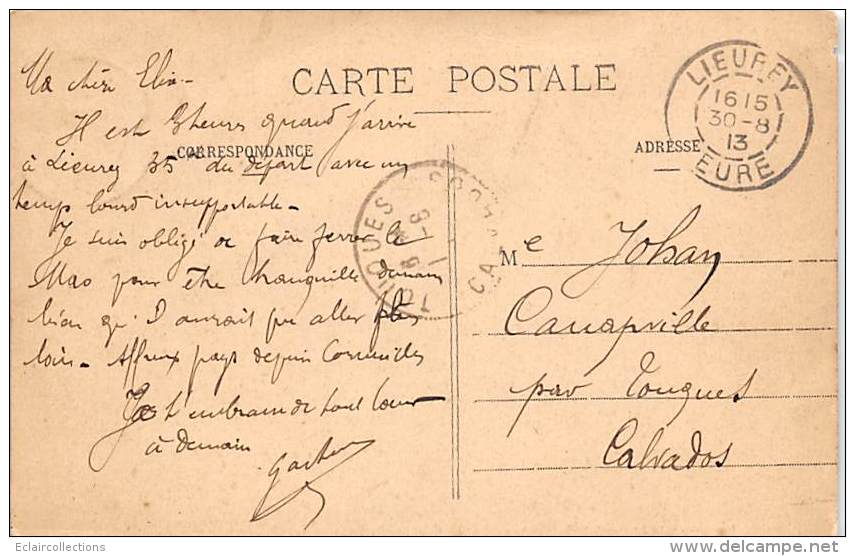 CARTE POSTALE
CORRESPONDANCE
ADRESSE
LIEUREY
16 15
30-8
13
EURE
TOUQUES
Ma chère
Il est 3 heures quand j'arrive
à Lieurey 35 du départ avec un
temps lourd insupportable -
Je suis obligé de faire ferrer le
Mao pour être tranquille demain
bien qu'il aurait pu aller plus
loin - Affreux pays depuis Cormeilles
Je t'embrasse de tout cœur
à demain
Gaston
Me Johan
Canapville
par Touques
Calvados
Eclaircollections
www.delcampe.net